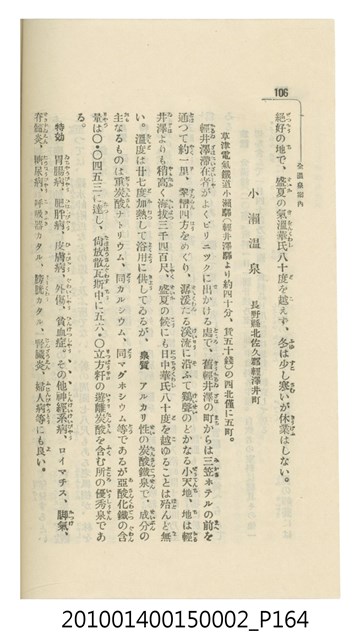 106
全温泉案内
絕好の地で、盛夏の氣溫華氏八十度を越えず、冬は少し寒いが休業はしない。
小瀨溫泉
長野縣北佐久郡輕井澤町
草津電氣鐵道小瀨驛(輕井澤驛より約四十分、賃五十錢)の西北僅に五町。
輕井澤滯在客がよくピクニツクに出かける處で、舊輕井澤の町からは三笠ホテルの前を
通つて約一里、翠巒四方をめぐり、潺湲たる溪流に沿ふて鶯聲のどかなる小天地、地は輕
井澤よりも稍高く海拔三千四百尺、盛夏の候にも日中華氏八十度を越ゆることは殆んと無
い。溫度は廿七度加熱して浴用に供してゐるが、泉質 アルカリ性の炭酸鐵泉で、成分の
主なるものは重炭酸ナトリウム、同カルシウム、同マグネシウム等であるが亞酸化鐵の含
量は〇・〇四五三に達し、尙放散瓦斯中に五六・〇立方糎の遊離炭酸を含む所の優秀泉であ
る。
特効 胃腸病、肥胖病、皮膚病、外傷、貧血症。その他神經系病、ロイマチス、脚氣、
脊髓炎、糖尿病、呼吸器カタル、膀胱カタル、腎臟炎、婦人病等にも良い。
201001400150002_P164